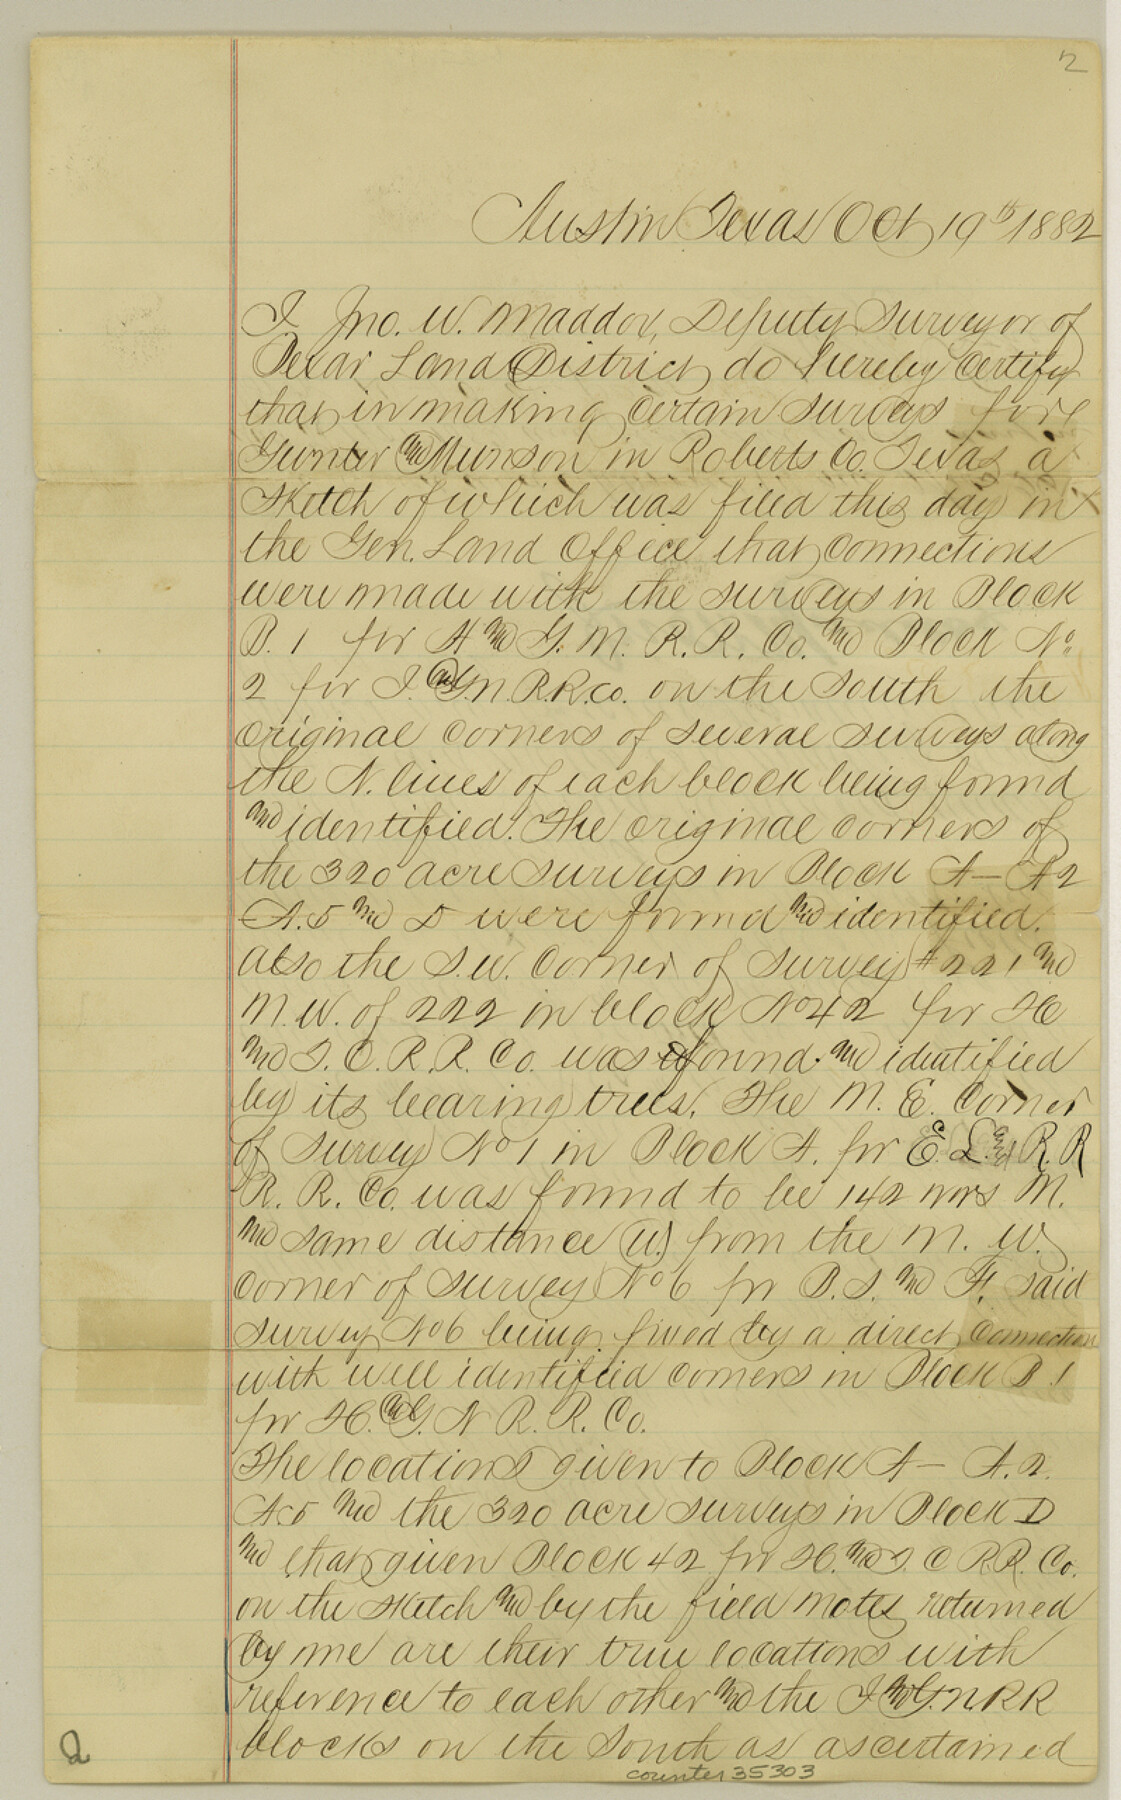 2
Austin Texas Oct 19th 1882
I Jno. W. Maddox, Deputy Surveyor of
Bexar Land District do hereby certify
that in making certain surveys for
Gunter and Munson in Roberts Co. Texas a
sketch of which was filed this day in
the Gen. Land Office that connections
were made with the surveys in Block
B. 1 for H and G. N. R. R. Co. and Block No.
2 for I. and G. N. R. R. Co. on the South the
original corners of several surveys along
the N. lines of each block being found
and identified. The original corners of
the 320 acre surveys in Block A — A2
A. 5 and D were found and identified.
also the S.W. Corner of Survey #221 and
N.W. of 222 in block No 42 for H
and T. C. R. R. Co. was found and identified
by its bearing trees. The N. E. Corner
of Survey No 1 in Block A. for E. L. and R. R
R. R. Co. was found to be 142 vrs N.
and same distance W. from the N. W.
corner of Survey No 6 for B. S. and F. said
survey No 6 being fixed by a direct connection
with well identified corners in Block B 1
for H. and G. N R. R. Co.
The locations given to Block A — A. 2.
A 5 and the 320 acre surveys in Block D
and that given Block 42 for H. and T. C R.R. Co.
on the sketch and by the field notes returned
by me are their true locations with
reference to each other and the I and G. N. R R
blocks on the South as ascertained
2
counter 35303